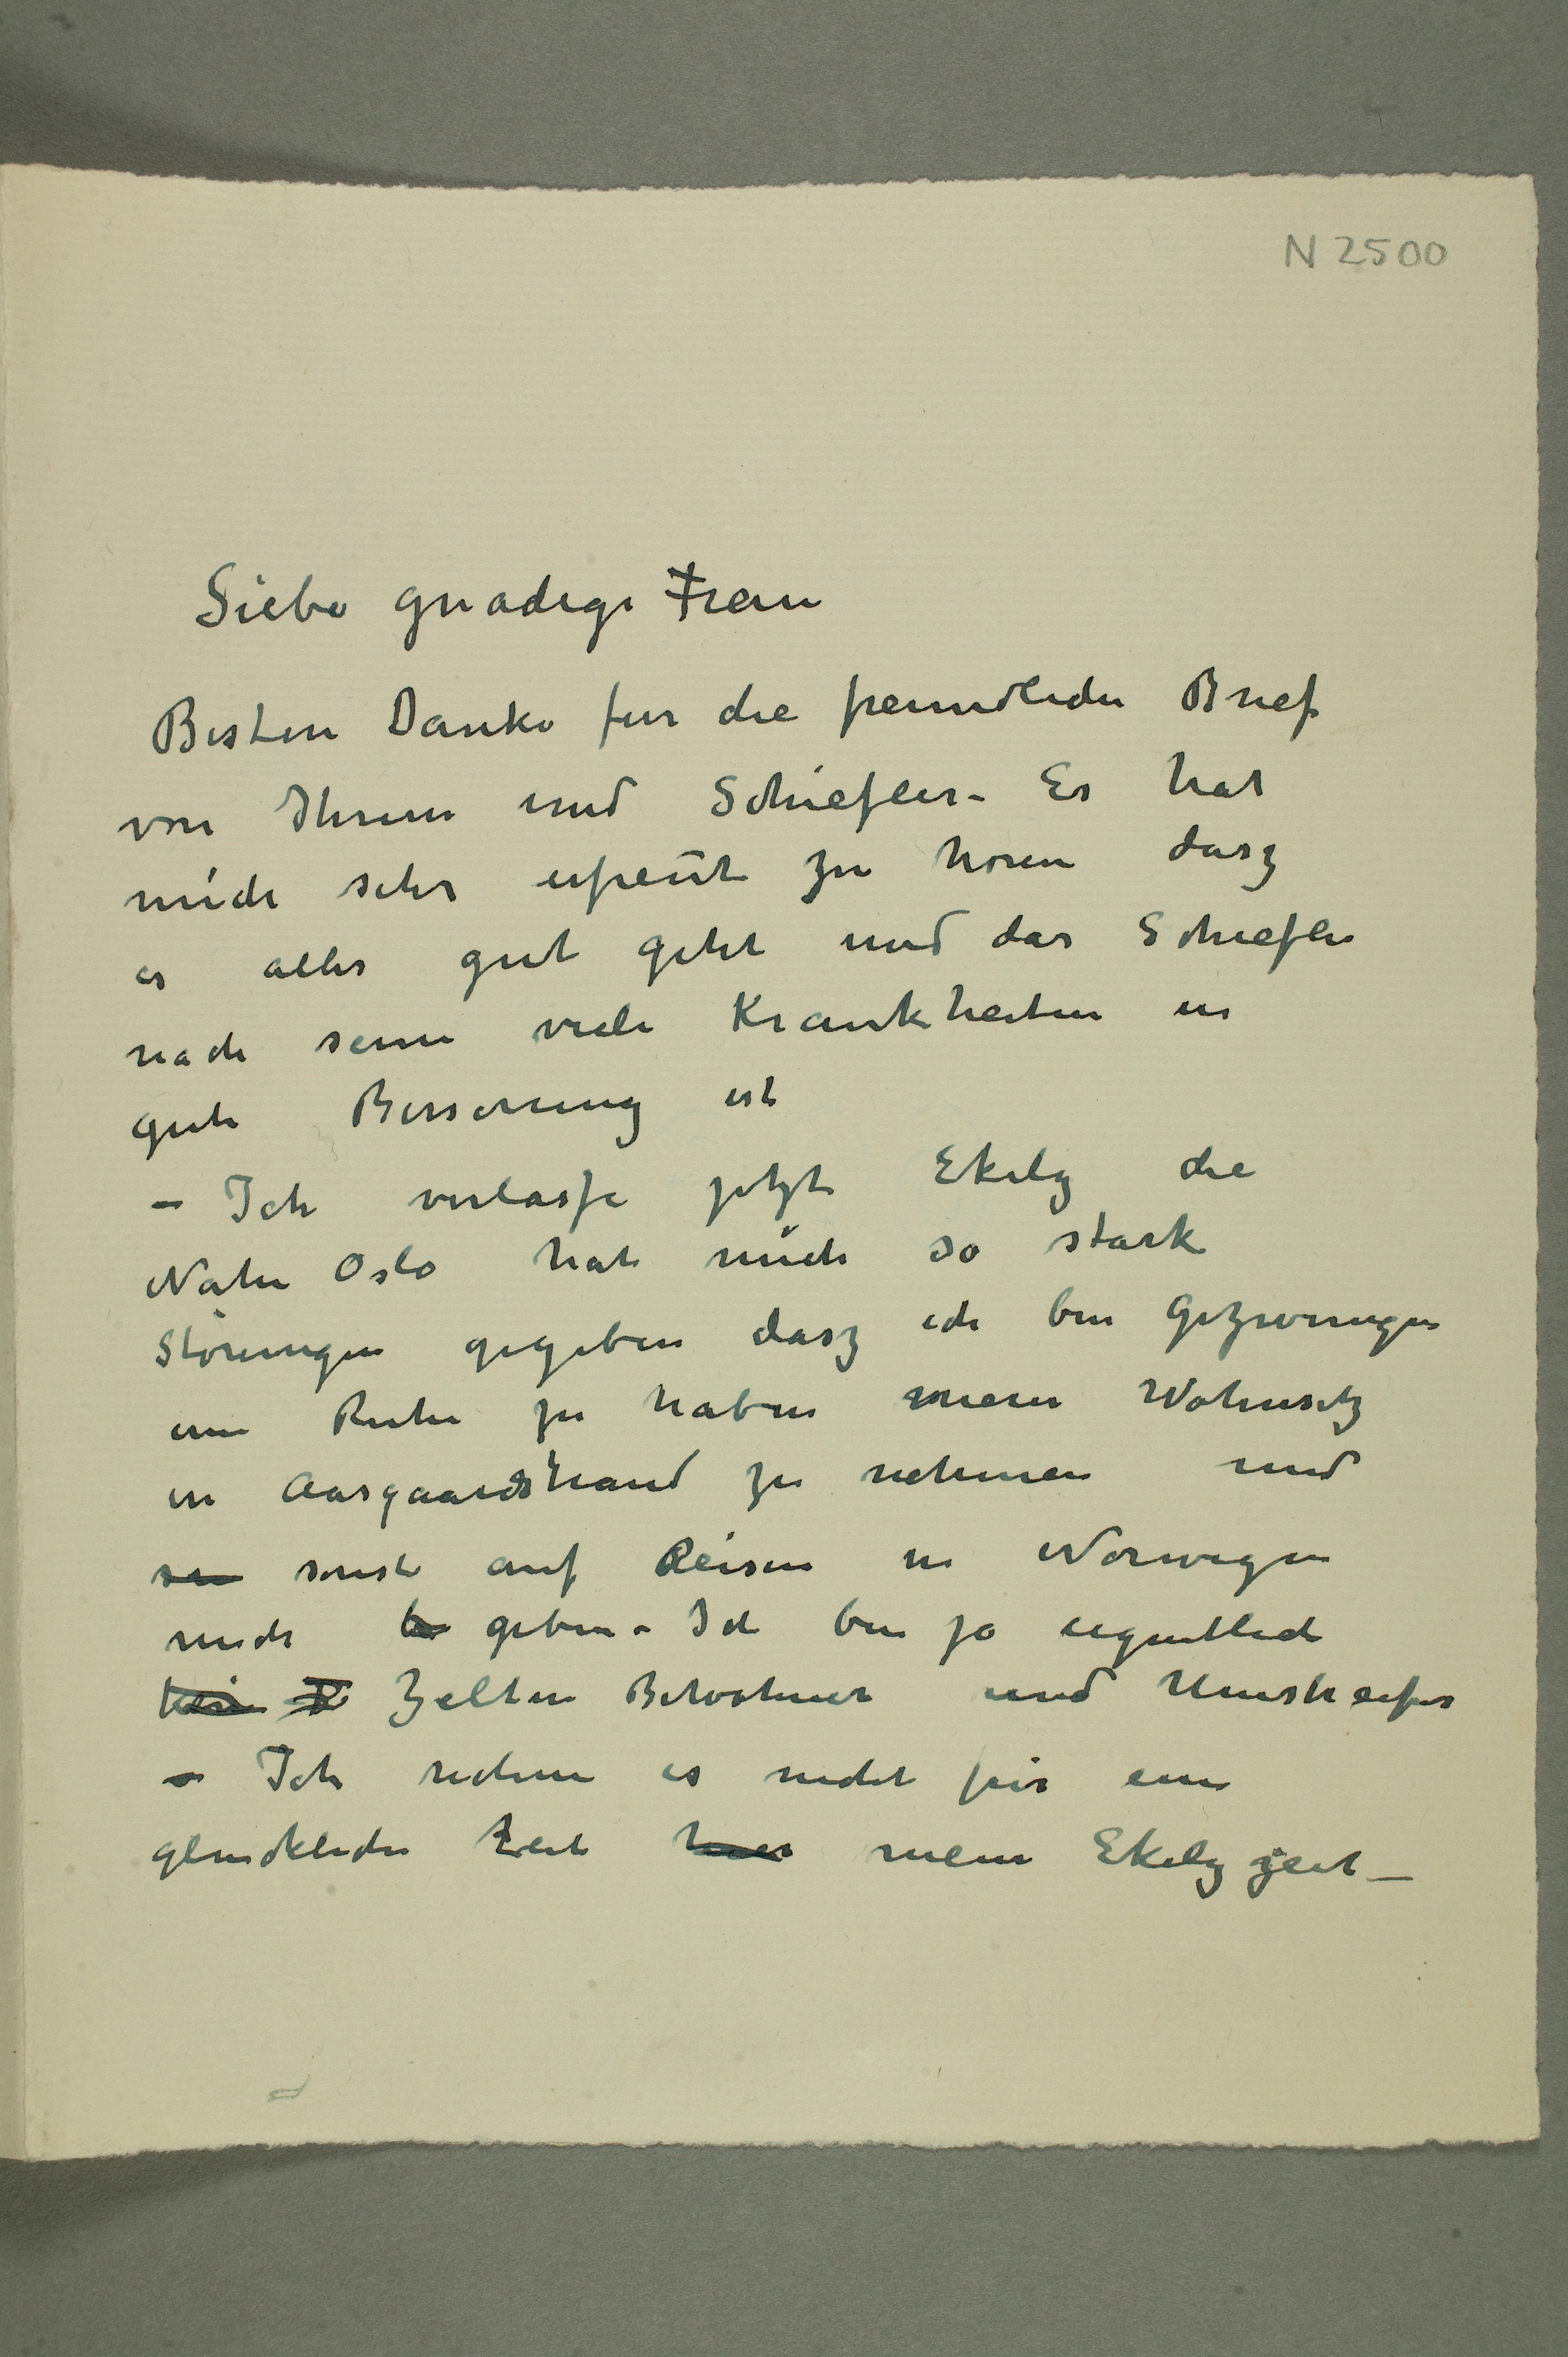 N 2500
Liebe gnadige Frau
Besten Danke fur die freundliche Brief
von Ihnen und Schiefler – Es hat
mich sehr erfreut zu horen dasz
es alles gut geht und das Schiefler
nach seine viele Krankheiten in
gute Besserung ist
– Ich verlasse jetzt Ekely die
Nahe Oslo hat mich so stark
Störungen gegeben dasz ich bin Gezwungen
um Ruhe zu haben meinen Wohnsitz
in Aasgaardstrand zu nehmen und
sonst auf Reisen in Norwegen
mich geben – Ich bin ja eigentlich
Zelten Bewohner und Umstreifer
– Ich rechne es nicht fur eine
gluckliche Zeit meine Ekelyzeit –